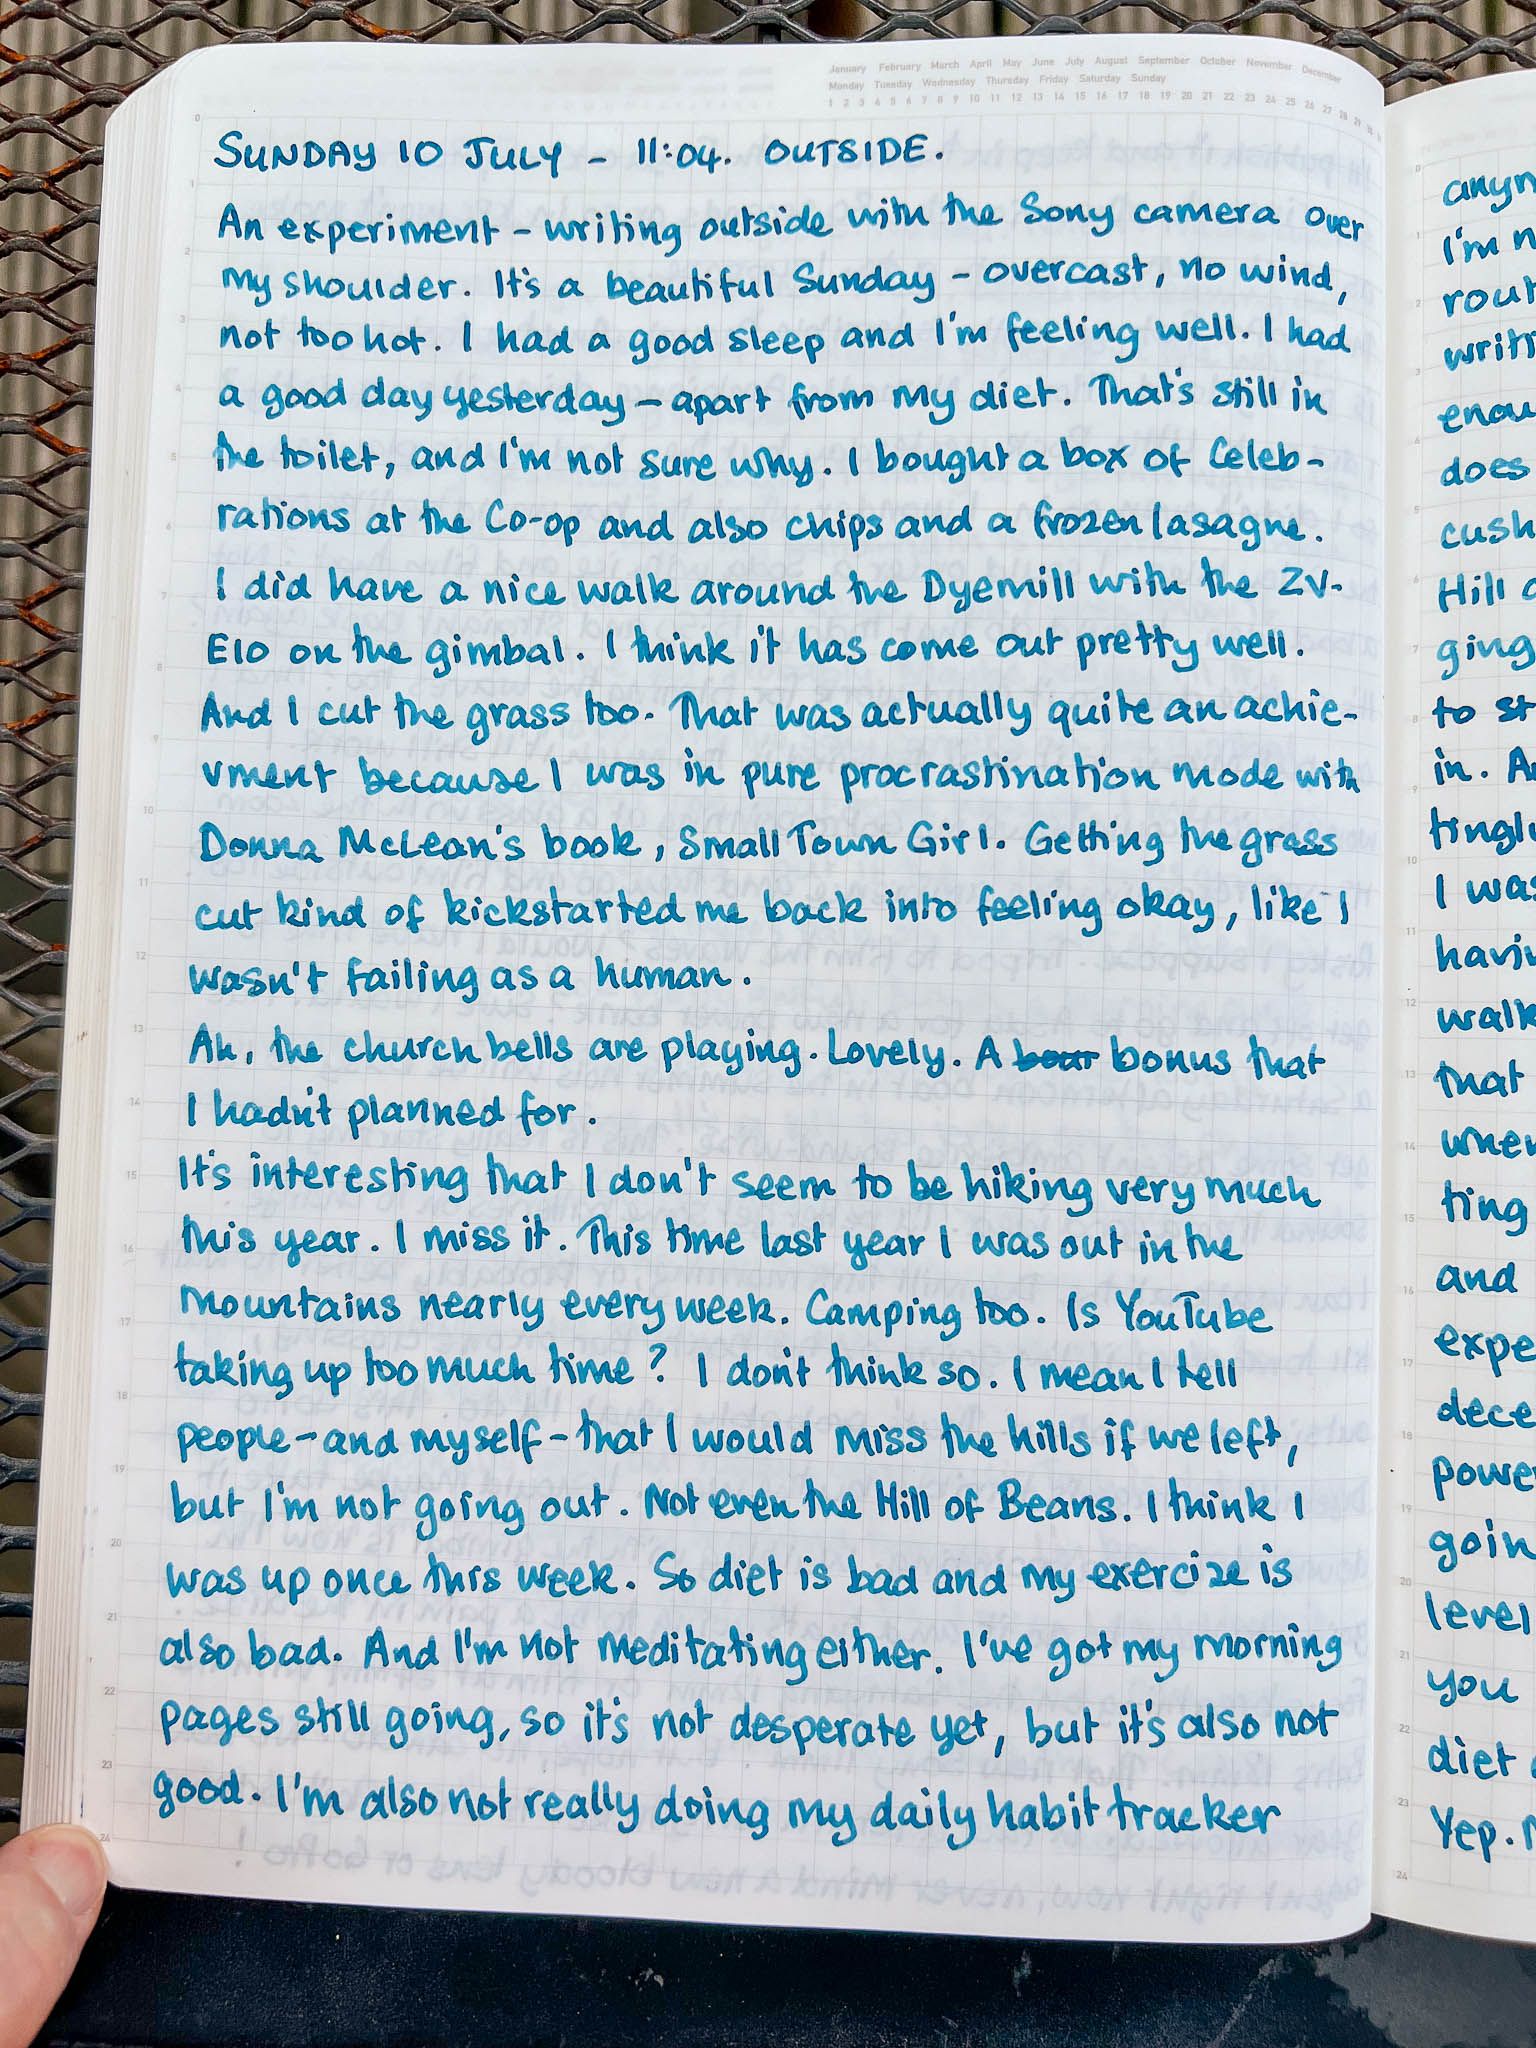 January February March April May June July August September October November December
Monday Tuesday Wednesday Thursday Friday Saturday Sunday
1 2 3 4 5 6 7 8 9 10 11 12 13 14 15 16 17 18 19 20 21 22 23 24 25 26 27 28 29 30 31
SUNDAY 10 JULY - 11:04. OUTSIDE.
An experiment - writing outside with the Sony camera over
my shoulder. It's a beautiful Sunday - overcast, no wind,
not too hot. I had a good sleep and I'm feeling well. I had
a good day yesterday - apart from my diet. That's still in
the toilet, and I'm not sure why. I bought a box of Celeb-
rations at the Co-op and also chips and a frozen lasagne.
I did have a nice walk around the Dyemill with the ZV-
E10 on the gimbal. I think it has come out pretty well.
And I cut the grass too. That was actually quite an achie-
vment because I was in pure procrastination mode with
Donna McLean's book, Small Town Girl. Getting the grass
cut kind of kickstarted me back into feeling okay, like I
wasn't failing as a human.
Ah, the church bells are playing. Lovely. A bour bonus that
I hadn't planned for.
It's interesting that I don't seem to be hiking very much
this year. I miss it. This time last year I was out in the
mountains nearly every week. Camping too. Is YouTube
taking up too much time? I don't think so. I mean I tell
people - and myself - that I would miss the hills if we left,
but I'm not going out. Not even the Hill of Beans. I think I
was up once this week. So diet is bad and my exercize is
also bad. And I'm not meditating either. I've got my morning
pages still going, so it's not desperate yet, but it's also not
good. I'm also not really doing my daily habit tracker
I'm
does
Hill
to st
in.
I was
that
ting
and
level
you
diet
Yep.